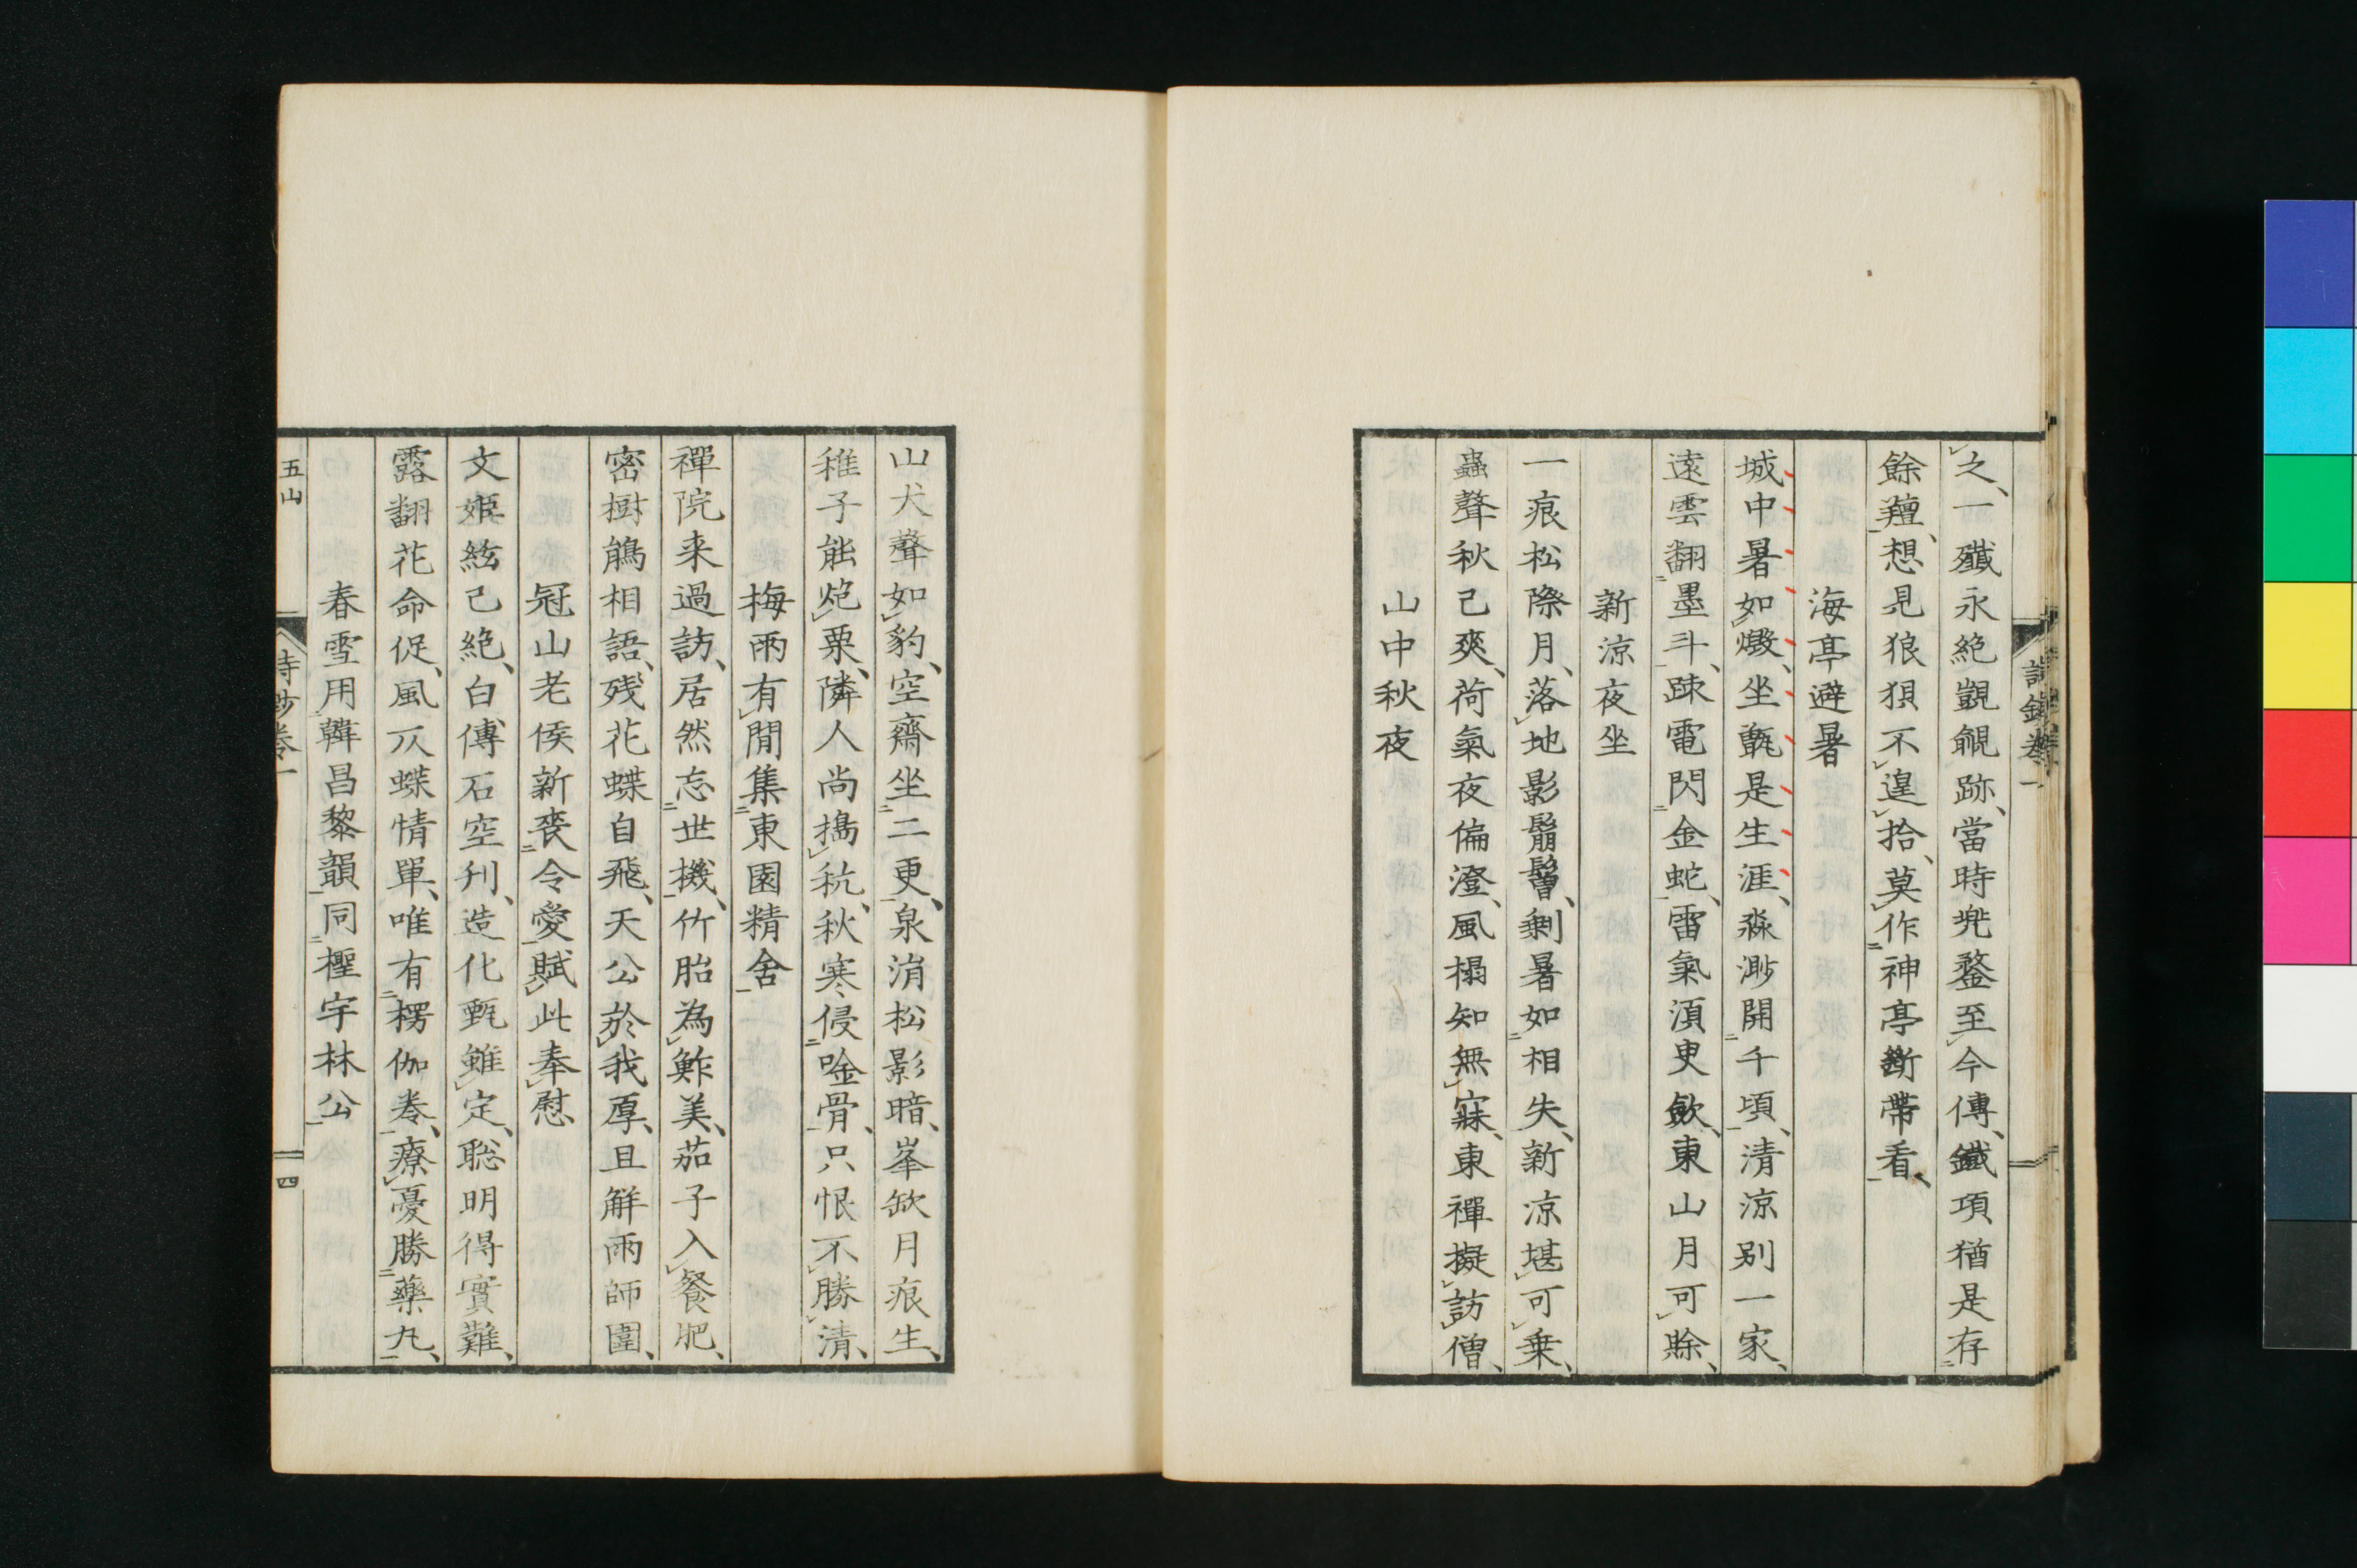 之一殲永絶覬覦跡當時兠鍪至今傳鐵項猶是存
餘羶想見狼狽不遑拾莫作神亭斷帶看
海亭避暑
城中暑如燬坐甑是生涯淼渺開千頃清涼別一家
遠雲翻墨斗疎電閃金蛇雷氣湏臾斂東山月可賖
新涼夜坐
一痕松際月落地影鬅鬙剰暑如相失新涼堪可乗
蟲聲秋已爽荷氣夜偏澄風榻知無寐東禪擬訪僧
山中秋夜
詩鈔卷一
山犬聲如豹空齋坐二更泉涓松影暗峯缺月痕生
稚子能炮栗隣人尚搗秔秋寒侵唫骨只恨不勝清
梅雨有閒集東園精舍
禪院来過訪居然忘世機竹胎為鮓美茄子入餐肥
密樹鵃相語残花蝶自飛天公於我厚且解雨師圍
冠山老侯新喪令愛賦此奉慰
文姫絃已絶白傅石空刋造化甄雖定聡明得實難
露翻花命促風仄蝶情單唯有楞伽巻療憂勝藥丸
春雪用韓昌黎韻同檉宇林公
五山
詩鈔卷一
四